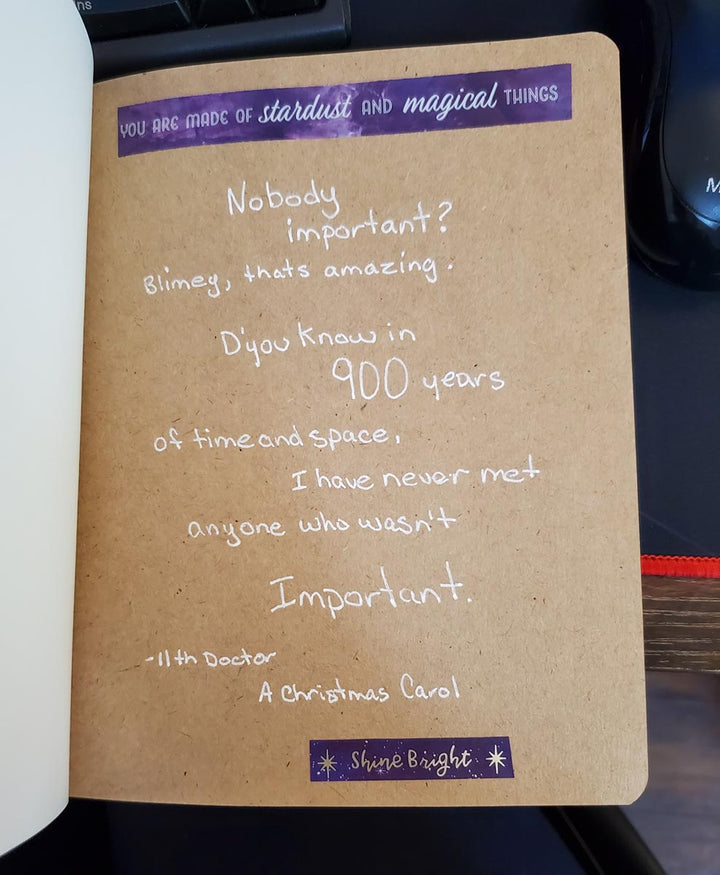 ns
YOU ARE MADE OF stardust AND magical THINGS
Nobody
important?
Blimey, thats amazing.
D'you Know in
900 years
of time and space,
I have never met
anyone who wasn't
Important.
-11th Doctor
A Christmas Carol
Shine Bright